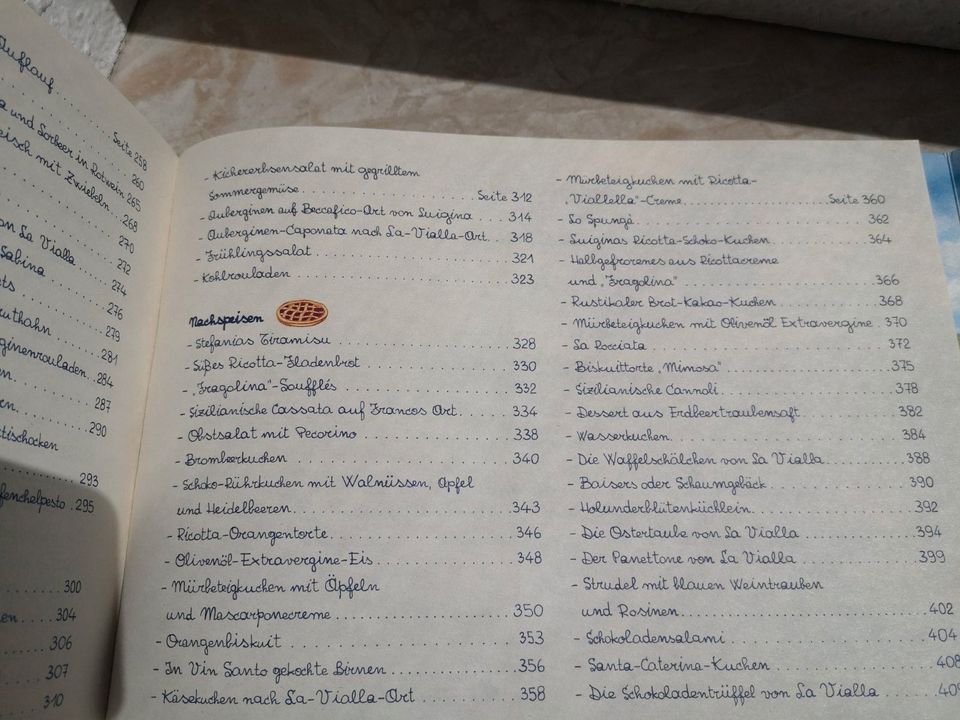 Auflauf . . . . . . . .
Seite 258
. . . . 260
und Lorbeer in Rotwein 265
mit Zwiebeln . . . . 268
. . . . 270
La Vialla . . . . 272
Sabina . . . . 274
. . . . 276
. . . . 279
. . . . 281
. . 284
. . . . 287
. . . . 290
. . . . 293
. 295
. . . . 300
. . . . 304
. . . . 306
. . . . 307
. . . . 310
- Kichererbsensalat mit gegrilltem
Sommergemüse . . . . . . . . Seite 312
- Auberginen auf Beccafico-Art von Luigina . . . . 314
- Auberginen-Caponata nach La-Vialla-Art . . 318
- Frühlingssalat . . . . . . . . 321
- Kohlrouladen . . . . . . . . 323
Nachspeisen
- Stefanias Tiramisu . . . . . . . . 328
- Süßes Ricotta-Fladenbrot . . . . . . . . 330
- „Fragolina"-Soufflés . . . . . . . . 332
- Sizilianische Cassata auf Francos Art . . . . . . . . 334
- Obstsalat mit Pecorino . . . . . . . . 338
- Brombeerkuchen . . . . . . . . 340
- Schoko-Rührkuchen mit Walnüssen, Apfel
und Heidelbeeren . . . . . . . . 343
- Ricotta-Orangentorte . . . . . . . . 346
- Olivenöl-Extravergine-Eis . . . . . . . . 348
- Mürbeteigkuchen mit Äpfeln
und Mascarponecreme . . . . . . . . 350
- Orangenbiskuit . . . . . . . . 353
- In Vin Santo gekochte Birnen . . . . . . . . 356
- Käsekuchen nach La-Vialla-Art . . . . . . . . 358
- Mürbeteigkuchen mit Ricotta-
„Viallella"-Creme . . . . . . . . Seite 360
- Lo Spungà . . . . . . . . 362
- Luiginas Ricotta-Schoko-Kuchen . . . . . . . . 364
- Halbgefrorenes aus Ricottacreme
und „Fragolina" . . . . . . . . 366
- Rustikaler Brot-Kakao-Kuchen . . . . . . . . 368
- Mürbeteigkuchen mit Olivenöl Extravergine . 370
- La Rocciata . . . . . . . . 372
- Biskuittorte „Mimosa" . . . . . . . . 375
- Sizilianische Cannoli . . . . . . . . 378
- Dessert aus Erdbeertraubensaft . . . . . . . . 382
- Wasserkuchen . . . . . . . . 384
- Die Waffelschälchen von La Vialla . . . . . . . . 388
- Baisers oder Schaumgebäck . . . . . . . . 390
- Holunderblütenküchlein . . . . . . . . 392
- Die Ostertaube von La Vialla . . . . . . . . 394
- Der Panettone von La Vialla . . . . . . . . 399
- Strudel mit blauen Weintrauben
und Rosinen . . . . . . . . 402
- Schokoladensalami . . . . . . . . 404
- Santa-Caterina-Kuchen . . . . . . . . 408
- Die Schokoladentrüffel von La Vialla . . . . . .